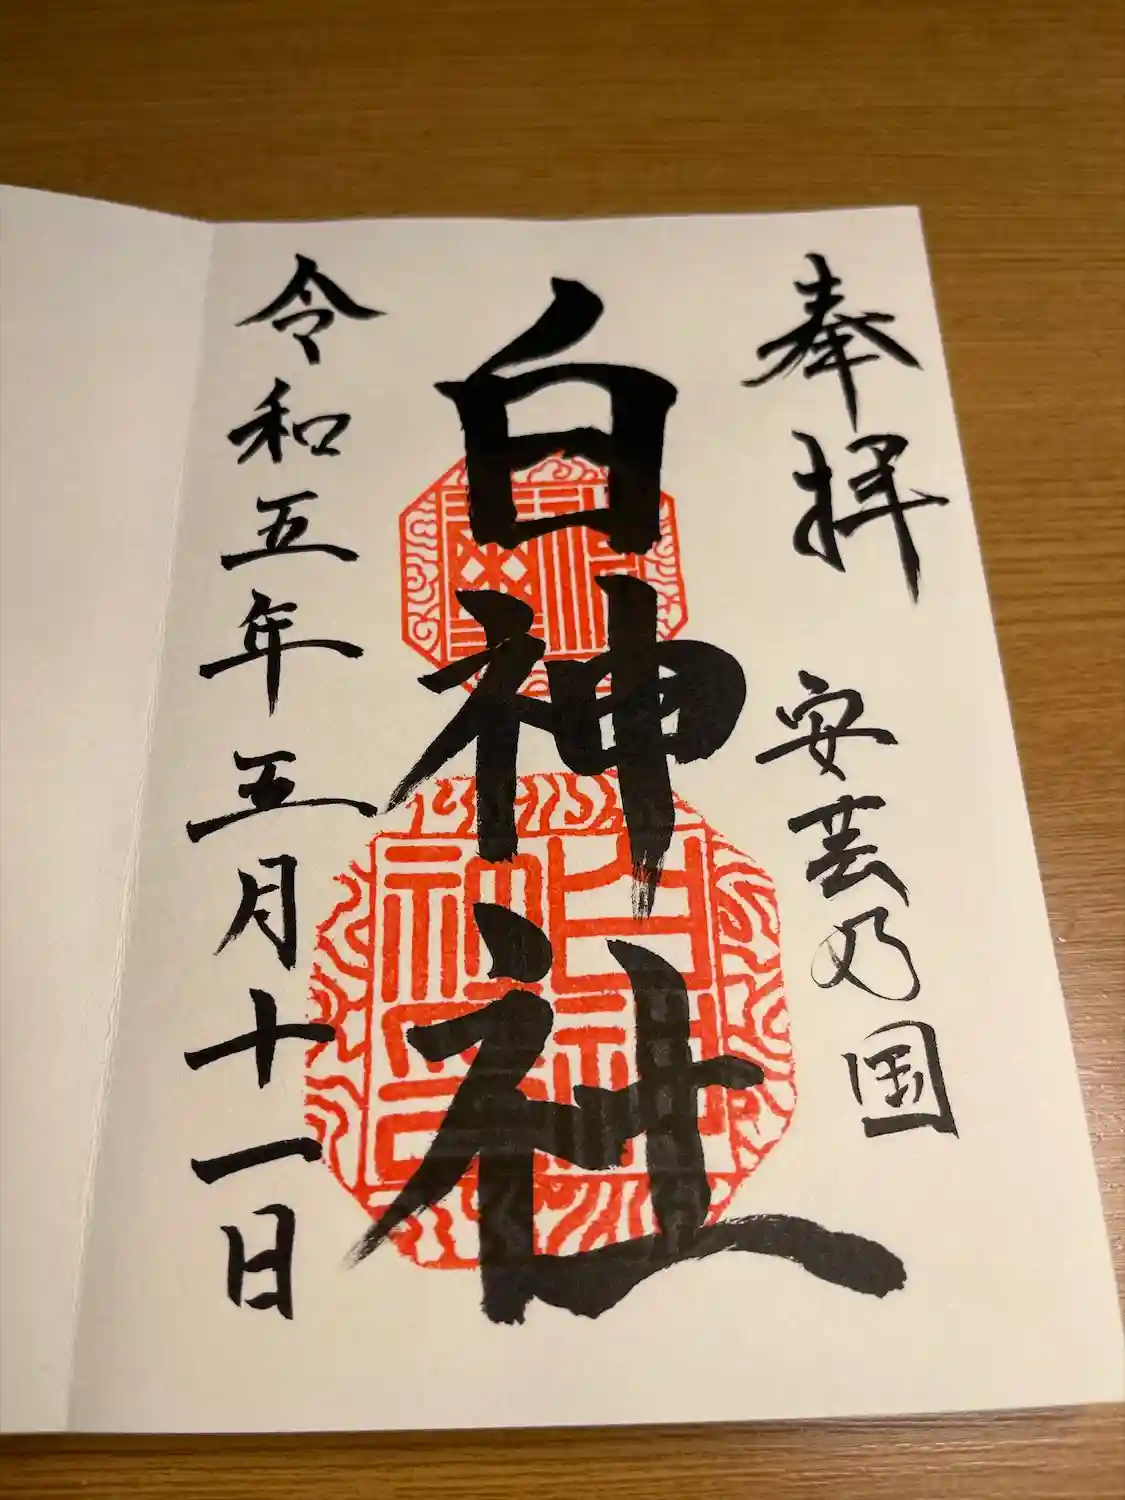 奉拝 安芸乃国
白神社
令和五年五月十一日